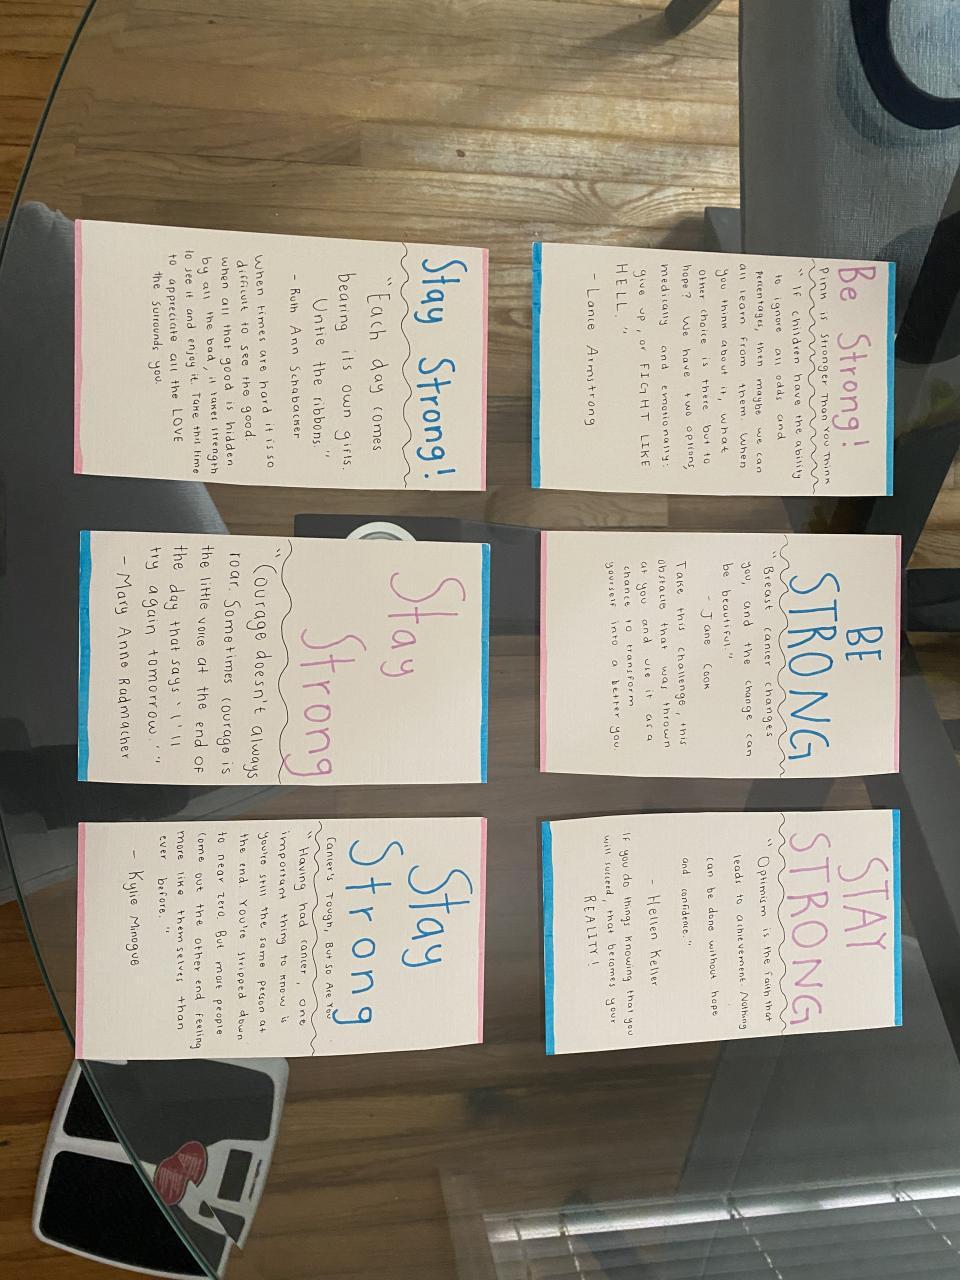 Be Strong!
Pink is Stronger Than You Think
"If children have the ability
to ignore all odds and
percentages, then maybe we can
all learn from them. When
you think about it, what
other choice is there but to
hope? We have two options,
medically and emotionally:
give up, or FIGHT LIKE
HELL."
- Lance Armstrong
BE
STRONG
"Breast cancer changes
you, and the change can
be beautiful."
- Jane Cook
Take this challenge, this
obstacle that was thrown
at you and use it as a
chance to transform
yourself into a better you.
STAY
STRONG
"Optimism is the faith that
leads to achievement. Nothing
can be done without hope
and confidence."
- Hellen Keller
If you do things knowing that you
will succeed, that becomes your
REALITY!
Stay Strong!
"Each day comes
bearing is own gifts.
Untie the ribbons."
- Ruth Ann Schabacker
When times are hard it is so
difficult to see the good.
when all that good is hidden
by all the bad, it takes strength
to see it and enjoy it. Take this time
to appreciate all the LOVE
the surrounds you.
Stay
Strong
"Courage doesn't always
roar. Sometimes courage is
the little voice at the end of
the day that says 'I'll
try again tomorrow.'"
- Mary Anne Radmacher
Stay
Strong
Cancer's Tough, But So Are You
"Having had cancer, one
important thing to know is
you're still the same person at
the end. You're stripped down
to near zero. But most people
come out the other end feeling
more like themselves than
ever before."
- Kylie Minogue